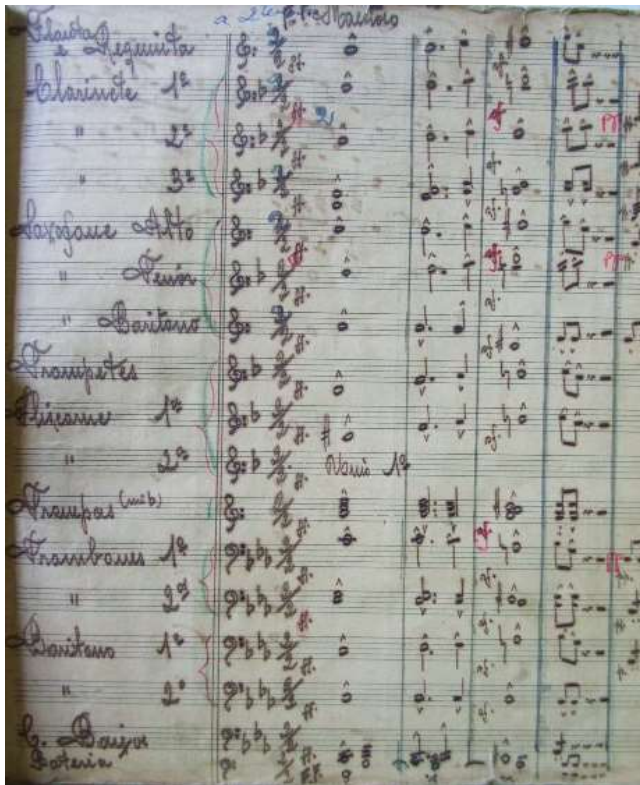 a 2 Maestoso
Flauta
e Requinta
Clarinete 1º
" 2º
" 3º
Saxofone Alto
" Tenor
" Baritono
Trompetes
Fliscorne 1º
" 2º
Como 1º
Trompas (mi b)
Trombones 1º
" 2º
Baritono 1º
" 2º
C. Baixos
Bateria